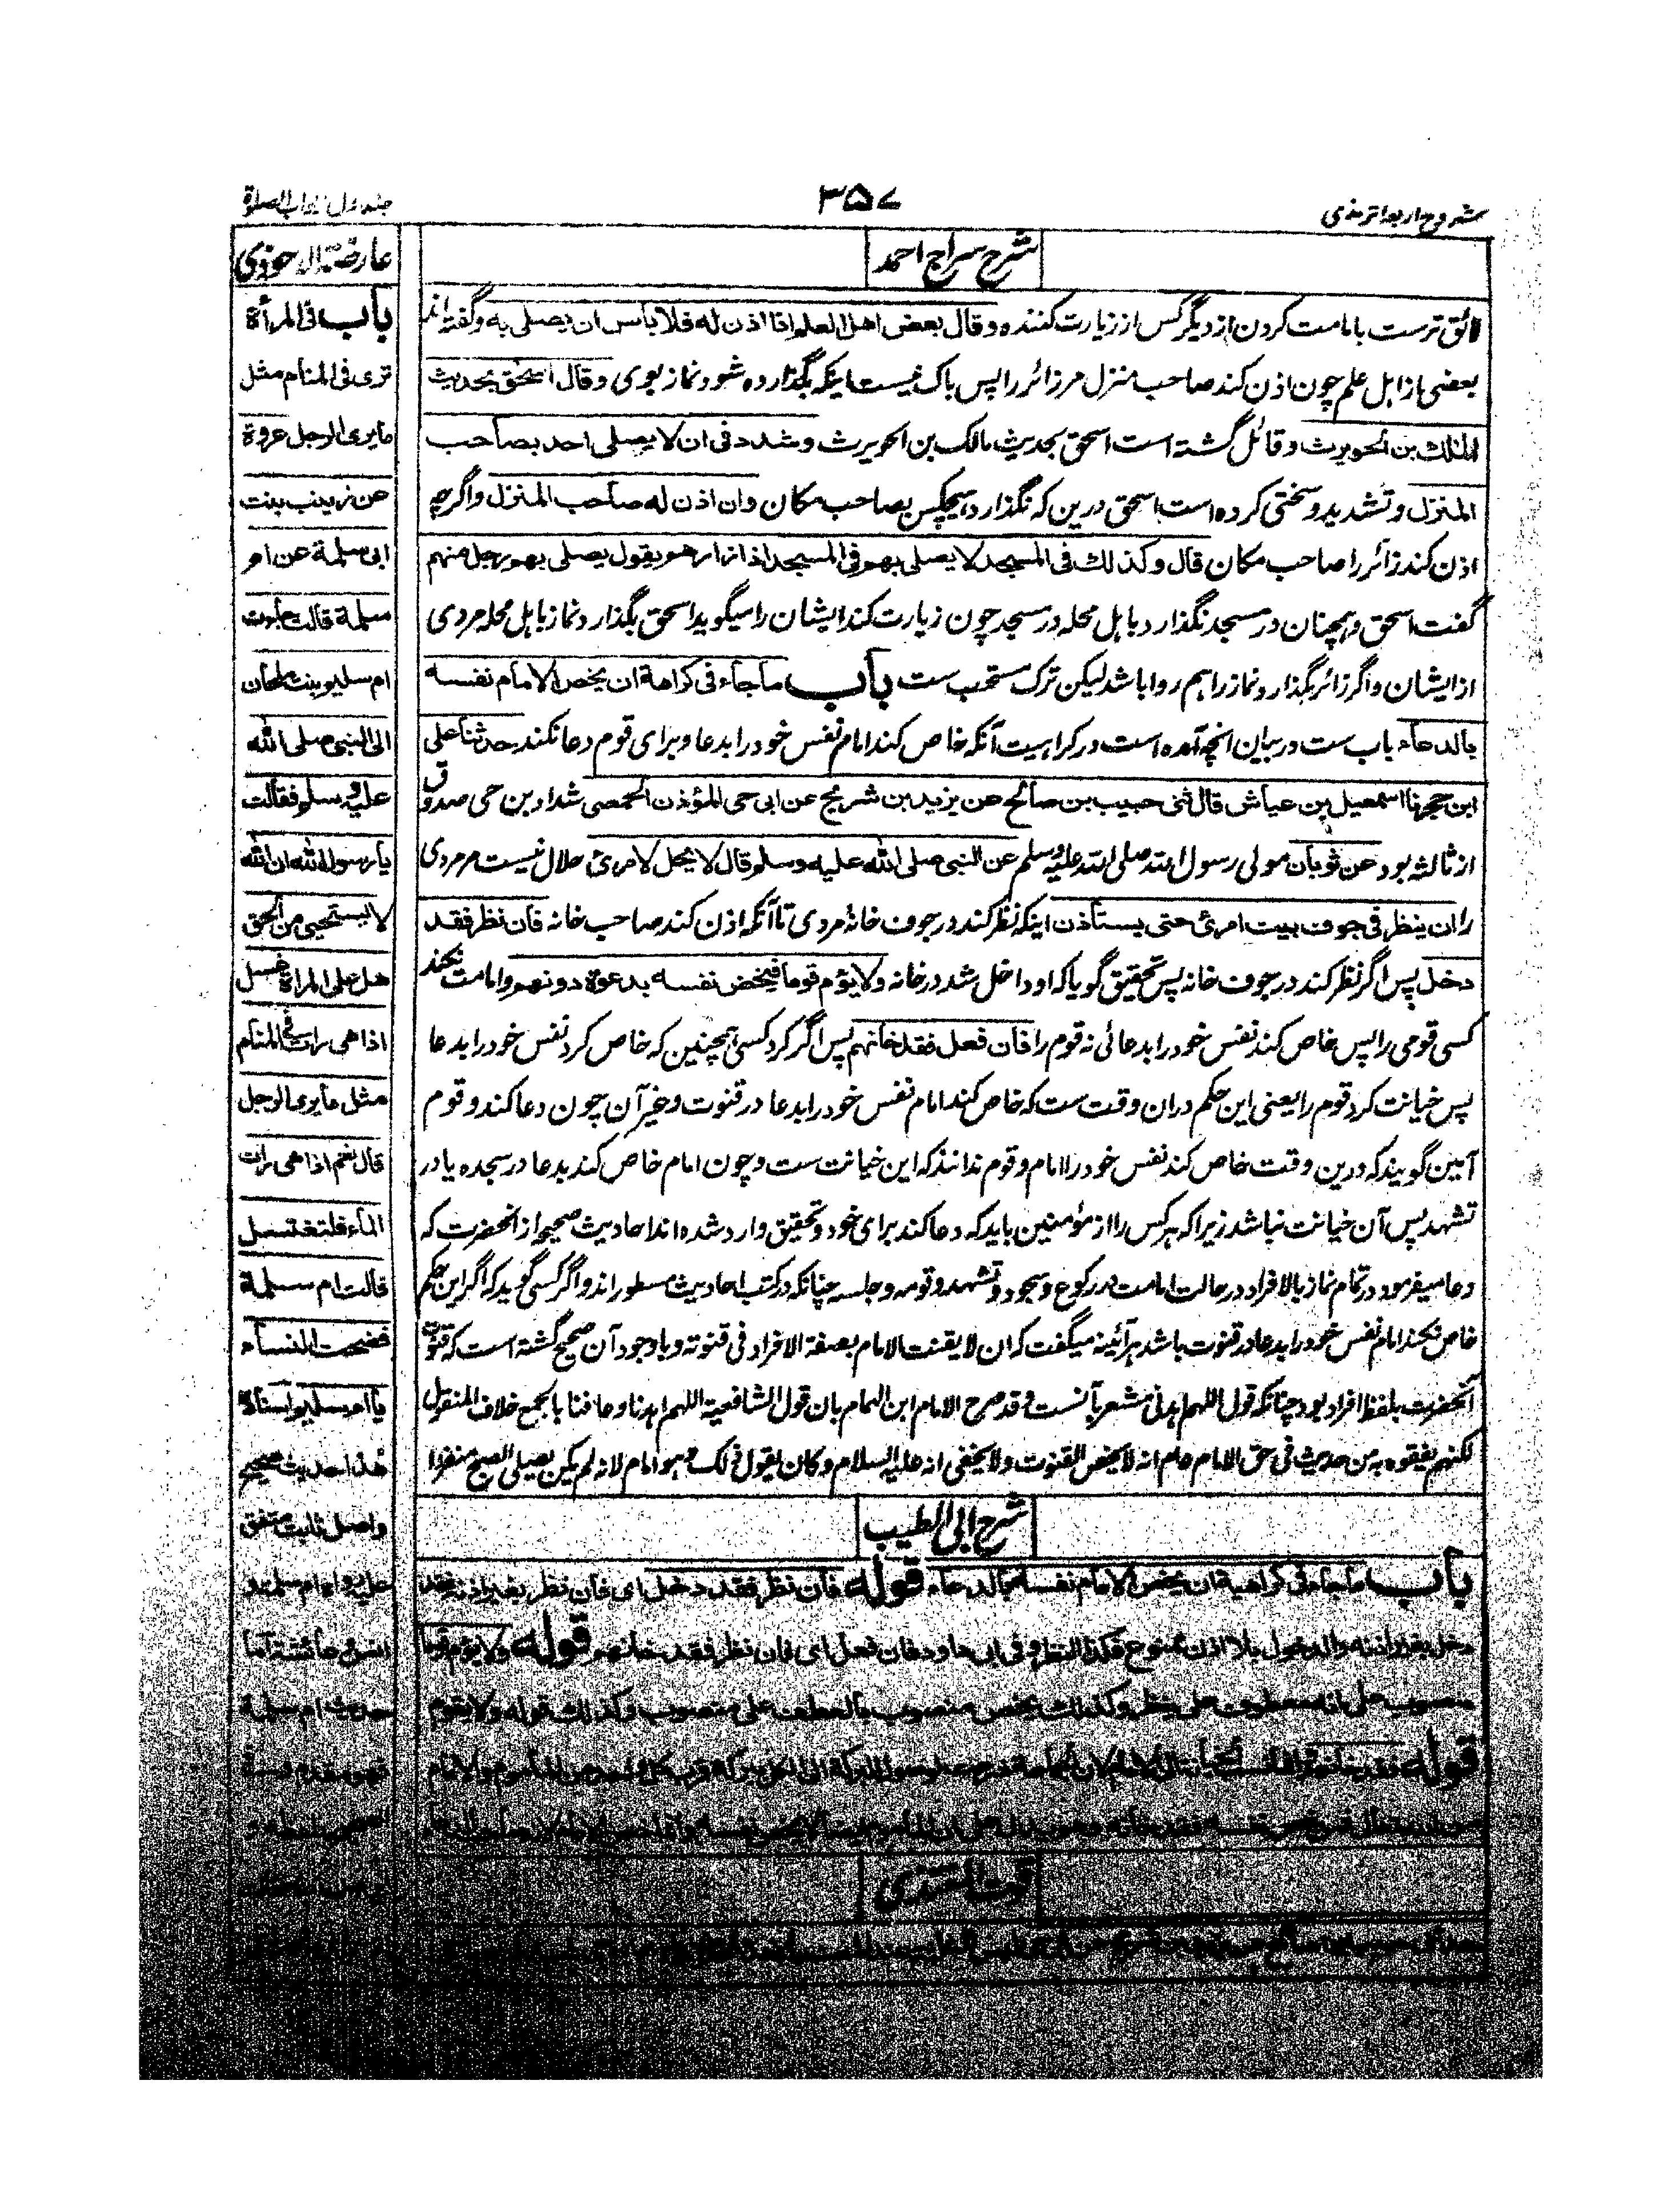 شروح اربعه ترمذی
۳۵۷
جلد اول ابواب الصلوة
شرح سراج احمد
لائق ترست بامامت کردن از دیگر کس از زیارت کننده وقال بعض اهل العلم اذا اذن له فلا بأس ان یصلی به وگفته اند
بعضی از اہل علم چون اذن کند صاحب منزل مر زائر را پس باک نیست اینکہ بگذارده شود نماز بوی وقال اسحق بحدیث
مالك بن الحویرث وقائل گشته است اسحق بحدیث مالک بن الحویرث وشدد فی ان لا یصلی احد بصاحب
المنزل وتشدید وسختی کرده است اسحق درین که نگذارد ہیچکس بصاحب مکان وان اذن له صاحب المنزل واگرچه
اذن کند زائر را صاحب مکان قال وکذلك فی المسجد لا یصلی بهم فی المسجد اذا زارهم یقول یصلی بهم رجل منهم
گفت اسحق وہمچنان در مسجد نگذارد باہل محله در مسجد چون زیارت کند ایشان را میگوید اسحق بگذارد نماز باہل محله مردی
از ایشان واگر زائر بگذارد نماز را ہم روا باشد لیکن ترک مستحب ست باب ما جاء فی کراهة ان یخص الامام نفسه
بالدعاء باب ست در بیان انچه آمده است در کراہیت آنکه خاص کند امام نفس خود را بدعا وبرای قوم دعا نکند حدثنا علی
ابن حجر نا اسمعیل بن عیاش قال ثنی حبیب بن صالح عن یزید بن شریح عن ابی حی المؤذن الحمصی شداد بن حی صدوق
از ثالثه بود عن ثوبان مولی رسول الله صلی الله علیه وسلم عن النبی صلی الله علیه وسلم قال لا یحل لامرئ حلال نیست مر مردی
را ان ینظر فی جوف بیت امرئ حتی یستأذن اینکه نظر کند در جوف خانهٔ مردی تا آنکه اذن کند صاحب خانه فان نظر فقد
دخل پس اگر نظر کند در جوف خانه پس تحقیق گویا که او داخل شد در خانه ولا یؤم قوما فیخص نفسه بدعوة دونهم وامامت نکند
کسی قومی را پس خاص کند نفس خود را بدعائی نه قوم را فان فعل فقد خانهم پس اگر کرد کسی ہمچنین که خاص کرد نفس خود را بدعا
پس خیانت کرد قوم را یعنی این حکم دران وقت ست که خاص کند امام نفس خود را بدعا در قنوت وغیر آن چون دعا کند وقوم
آمین گویند که درین وقت خاص کند نفس خود را امام وقوم ندانند که این خیانت ست وچون امام خاص کند بدعا در سجده یا در
تشہد پس آن خیانت نباشد زیرا که ہر کس را از مؤمنین باید که دعا کند برای خود وتحقیق وارد شده اند احادیث صحیحه از انحضرت که
دعا میفرمود در تمام نماز بالافراد در حالت امامت در رکوع وسجود وتشہد وقومه وجلسه چنانکه در کتب احادیث مسطور اند واگر کسی گوید که اگر این حکم
خاص نکند امام نفس خود را بدعا در قنوت باشد ہر آئینه میگفت که ان لا یقنت الامام بصفة الافراد فی قنوته وباوجود آن صحیح گشته است که قنوت
آنحضرت بلفظ افراد بود چنانکه قول اللهم اہدنی مشعر بآنست وقد صرح الامام ابن الہمام بان قول الشافعیة اللهم اہدنا وعافنا بالجمع خلاف المنقول
لکنهم یفقوہ به من حدیث فی حق الامام عام انه لا یخص القنوت ولا یخفی انه علیه السلام وکان یقول ذلک وہو امام لانه لم یکن یصلی الصبح منفردا
شرح ابی الطیب
باب ما جاء فی کراهیة ان یخص الامام نفسه بالدعاء قوله فان نظر فقد دخل ای فان نظر بغیر اذنه فقد
دخل بغیر اذنه والدخول بلا اذن ممنوع فکذا النظر وفی ابی داود فان فعل ای فان نظر فقد خانهم قوله ولا یؤم قوما
منصوب علی انه معطوف علی ینظر وکذلك یخص منصوب بالعطف علی منصوب وکذلك قوله ولا یقوم
قوله فقد خانهم
قوت المغتذی
عارضة الاحوذی
باب فی المرأة
تری فی المنام مثل
ما یری الرجل عروة
عن زینب بنت
ابی سلمة عن ام
سلمة قالت جاءت
ام سلیم بنت ملحان
الی النبی صلی الله
علیه وسلم فقالت
یا رسول الله ان الله
لا یستحیی من الحق
هل علی المرأة غسل
اذا هی رات فی المنام
مثل ما یری الرجل
قال نعم اذا هی رات
الماء فلتغتسل
قالت ام سلمة
فضحت النساء
یا ام سلیم اسناده
هذا حدیث صحیح
واصل ثابت متفق
علیه رواه ام سلمة و
انس وعائشة اما
حدیث ام سلمة